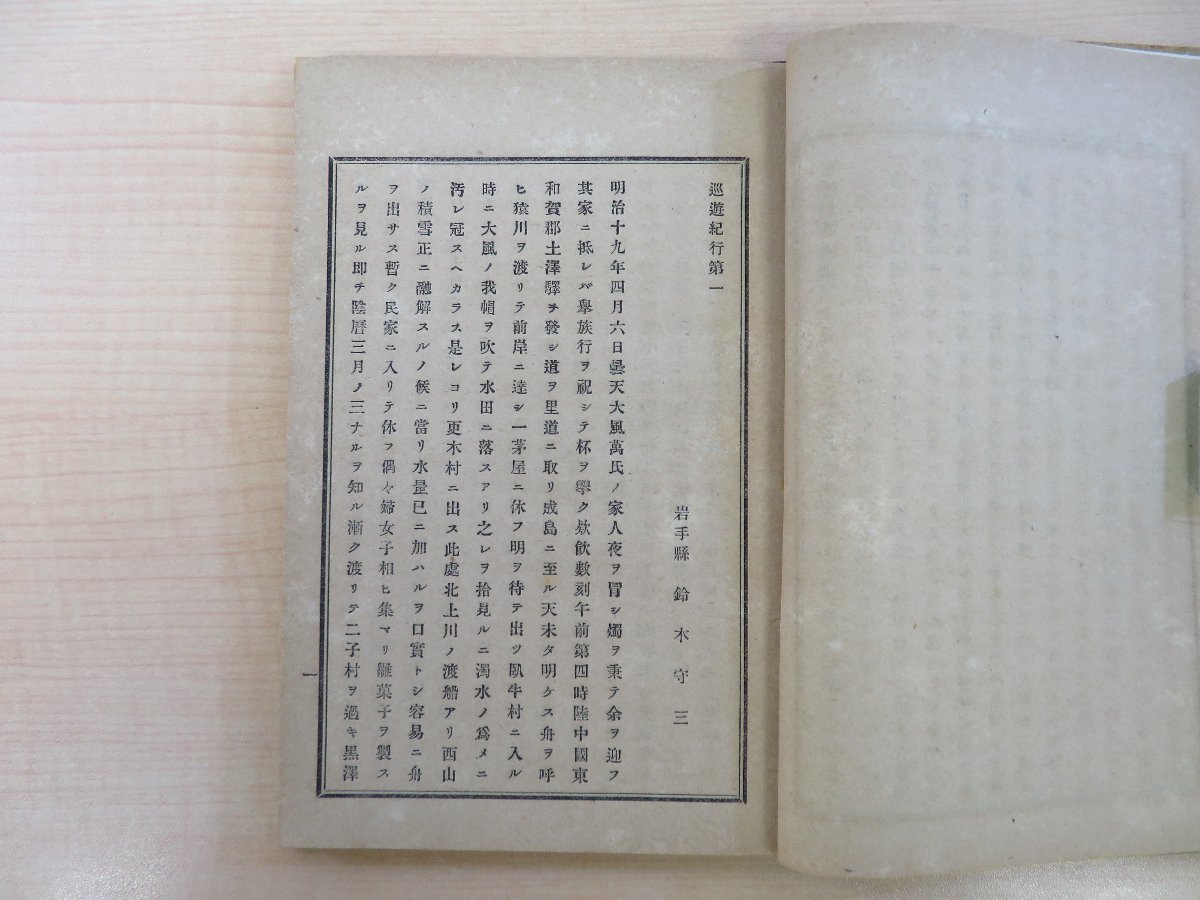 巡遊紀行第一
岩手縣 鈴木守三
明治十九年四月六日曇天大風萬氏ノ家人夜ヲ冒シ燭ヲ秉テ余ヲ迎フ
其家ニ抵レバ擧族行ヲ祝シテ杯ヲ擧ク欸飮數刻午前第四時陸中國東
和賀郡土澤驛ヲ發シ道ヲ里道ニ取リ成島ニ至ル天未タ明ケス舟ヲ呼
ヒ猿川ヲ渡リテ前岸ニ達シ一茅屋ニ休フ明ヲ待テ出ツ臥牛村ニ入ル
時ニ大風ノ我帽ヲ吹テ水田ニ落スアリ之レヲ拾見ルニ濁水ノ爲メニ
汚レ冠スヘカラス是レヨリ更木村ニ出ス此處北上川ノ渡船アリ西山
ノ積雪正ニ融解スルノ候ニ當リ水量已ニ加ハルヲ口實トシ容易ニ舟
ヲ出サス暫ク民家ニ入リテ休フ偶々婦女子相ヒ集マリ雛菓子ヲ製ス
ルヲ見ル即チ陰曆三月ノ三ナルヲ知ル漸ク渡リテ二子村ヲ過キ黑澤
一